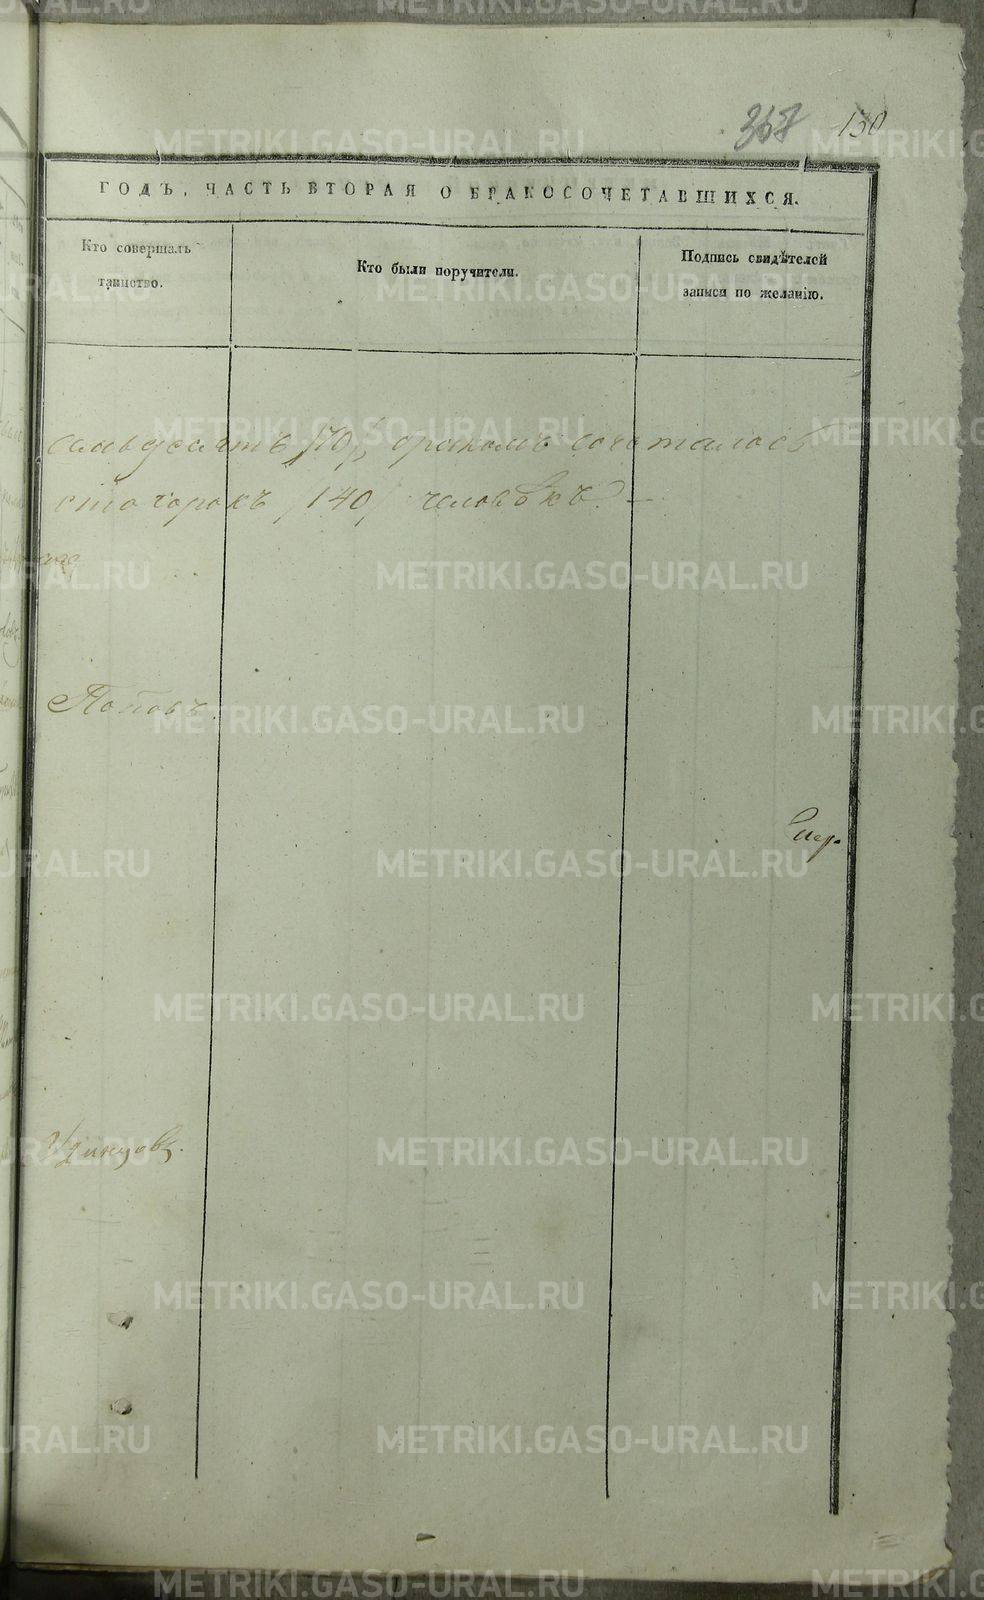 367 130
ГОДЪ, ЧАСТЬ ВТОРАЯ О БРАКОСОЧЕТАВШИХСЯ.
Кто совершалъ таинство.
Кто были поручители.
Подпись свидѣтелей записи по желанію.
семьдесятъ /70/, бракомъ сочеталось
сто сорокъ /140/ человѣкъ. —
Поповъ.
Удинцовъ.
METRIKI.GASO-URAL.RU